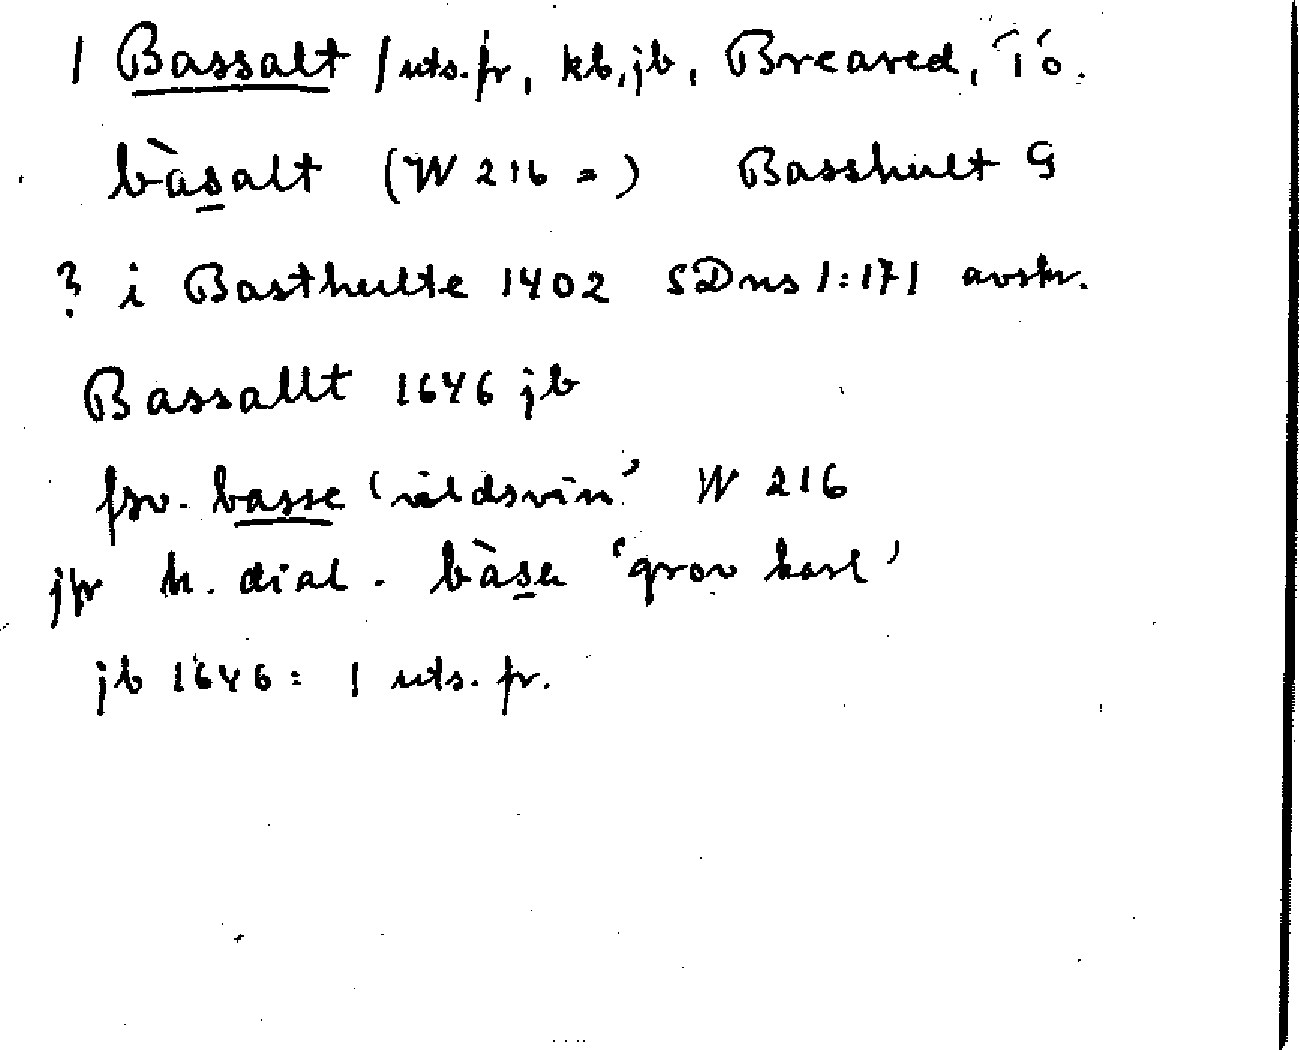 1 Bassalt 1 uts. fr, kb, jb, Breared, Tö.
bàs̲alt (W 216 =) Basshult G
? i Basthulte 1402 SDns 1:171 avskr.
Bassallt 1646 jb
fsv. basse 'vildsvin' W 216
jfr h. dial. bàs̲a 'grov karl'
jb 1646: 1 uts. fr.